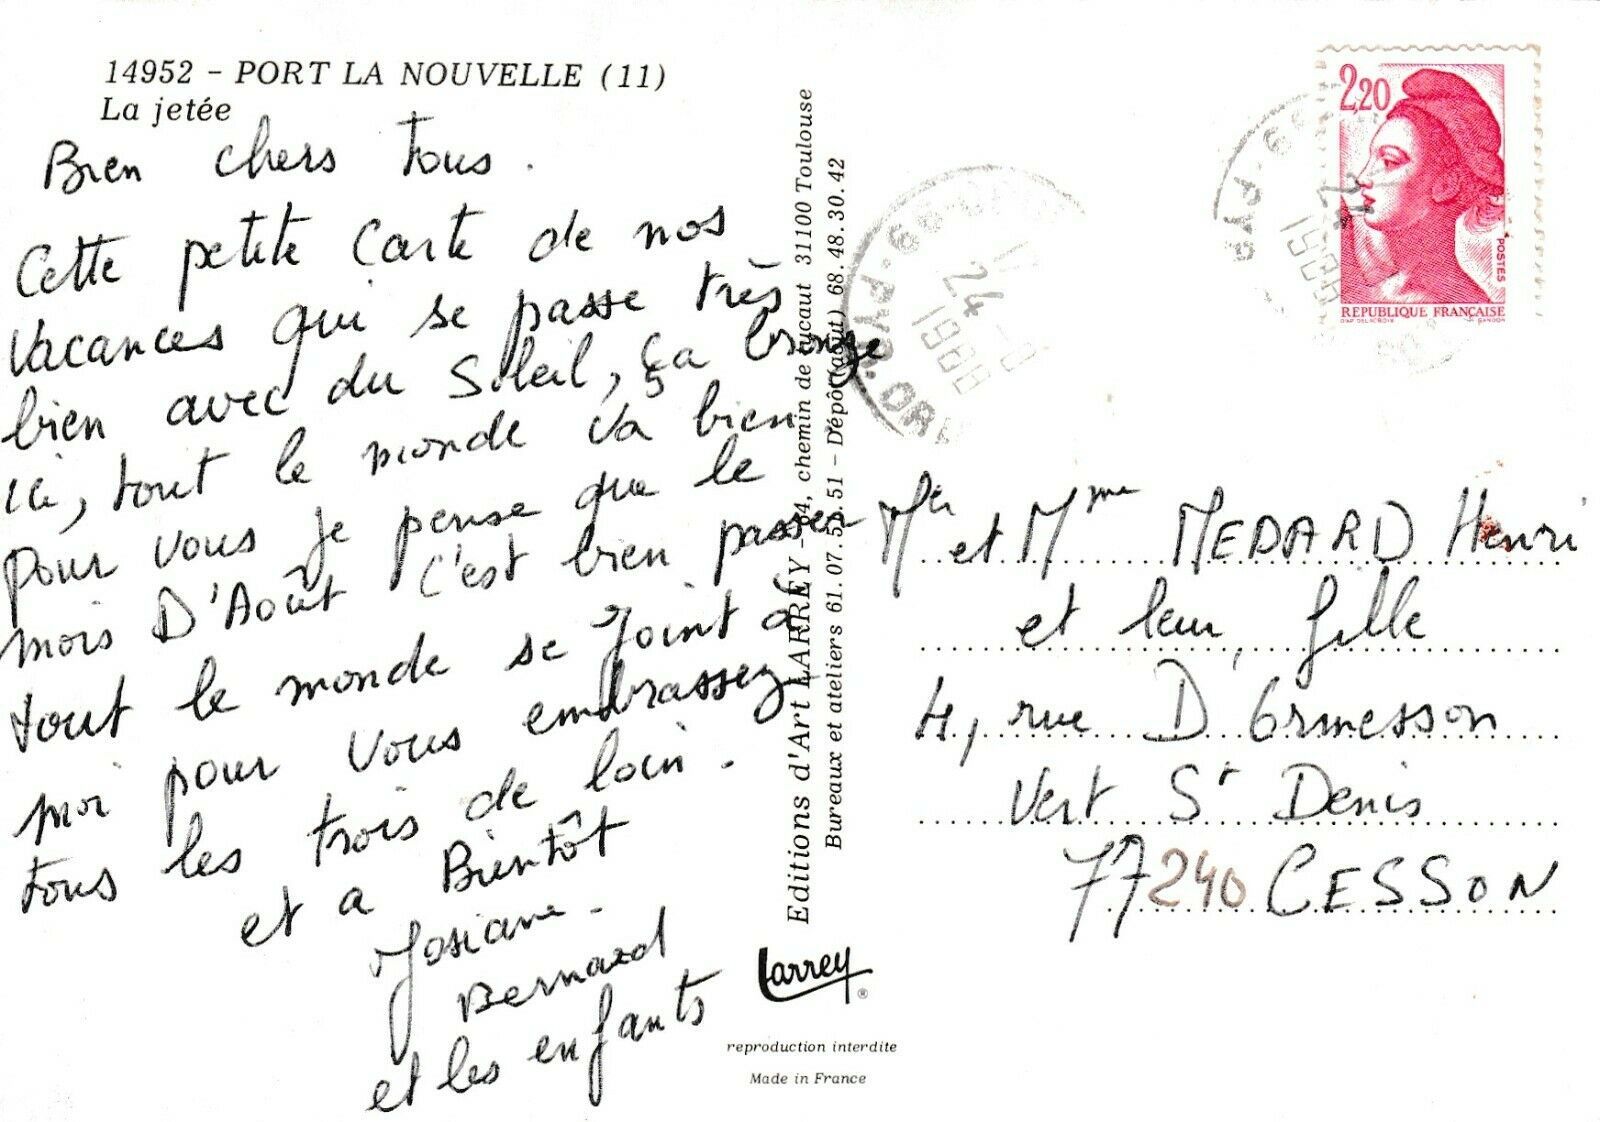 14952 - PORT LA NOUVELLE (11)
La jetée
Bien chers Tous.
Cette petite Carte de nos
Vacances qui se passe très
bien avec du Soleil, ça bronze
ici, tout le monde va bien
pour vous je pense que le
mois D'Août c'est bien passer
tout le monde se joint à
moi pour vous embrassez
tous les trois de loin.
et a Bientôt
Josiane.
Bernard
et les enfants
Editions d'Art LARREY - 34, chemin de 31100 Toulouse
Bureaux et ateliers 61.07.55.51 - Dépôt (août) 68.48.30.42
Larrey ®
reproduction interdite
Made in France
24
1988
24
1988
2,20
POSTES
REPUBLIQUE FRANÇAISE
D'AP. DELACROIX
GANDON
Mr et Mme MEDARD Henri
et leur fille
4, rue D'Ormesson
Vert St Denis
77240 CESSON